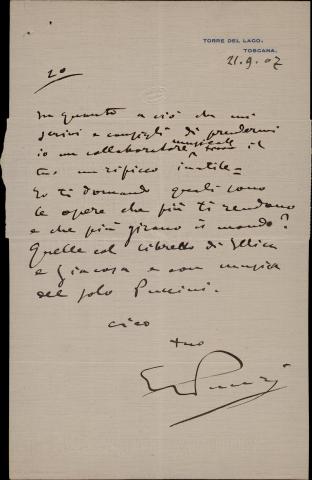 TORRE DEL LAGO.
TOSCANA.
21.9.07
2º
In quanto a ciò che mi
scrivi e consigli di prendermi
io un collaboratore musicale il
tuo inutile =
Io ti domando quali sono
le opere che più ti rendono
e che più girano il mondo?
Quelle col libretto di Illica
e Giacosa e con musica
del solo Puccini.
ciao
tuo
GPuccini